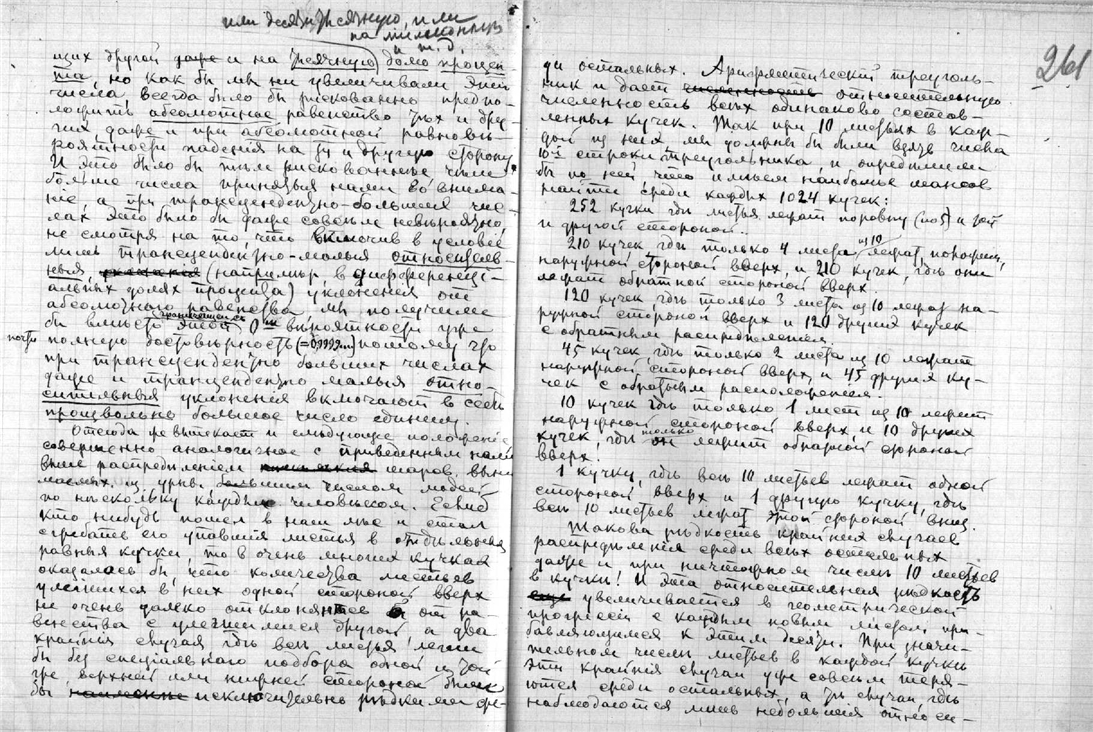 или десятитысячную, или
на миллионную
и т. д.
щих другой даже и на тысячную долю процен-
та, но как бы мы ни увеличивали эти
числа всегда было бы рискованно предпо-
ложить абсолютное равенство тех и дру-
гих даже и при абсолютной равновѣ-
роятности падения на ту и другую сторону.
И это было бы тѣм рискованнѣе чѣм
больше числа приняты нами во внима-
ние, а при трансцендентно-больших чис-
лах это было бы даже совсем невѣроятно,
не смотря на то, что включив в условие
лишь трансцендентно-малыя относитель-
ныя (напримѣр в дифференци-
альных долях процента) уклонения от
абсолютного равенства мы получили
бы вмѣсто этой вѣроятности уже
почти полную достовѣрность (=0,9999...) потому что
при трансцендентно больших числах
даже и трансцендентно малыя отно-
сительныя уклонения включают в себѣ
произвольно большое число единиц.
Отсюда же вытекает и слѣдующее положение
совершенно аналогичное с приведенным нами
выше распредѣлением шаров, выни-
маемых из урны большим числом людей
по нѣскольку каждым человѣком. Если б
кто нибудь пошел в наш лѣс и стал
сгребать его упавшия листья в отдѣльныя
равныя кучки, то в очень многих кучках
оказалось бы, что количества листьев
улегшихся в них одной стороной вверх
не очень далеко отклоняются от ра-
венства с улегшимися другой, а два
крайния случая гдѣ всѣ листья легли
бы без специального подбора одной и той
же, верхней или нижней стороной были
бы исключительно рѣдкими сре-
261
ди остальных. Арифметический треуголь-
ник и дает относительную
численность всѣх одинаково состав-
ленных кучек. Так при 10 листьях в каж-
дой из них мы должны бы были взять числа
10-й строки треугольника и опредѣлили
бы по ней что имѣем наиболее шансов
найти среди каждых 1024 кучек:
252 кучки гдѣ листья лежат поровну (по 5) и той
и другой стороной.
210 кучек гдѣ только 4 листа из 10 лежат, положим,
наружной стороной вверх, и 210 кучек, гдѣ они
лежат обратной стороной вверх.
120 кучек, гдѣ только 3 листа из 10 лежат на-
ружной стороной вверх и 120 других кучек
с обратным распредѣлением.
45 кучек, гдѣ только 2 листа из 10 лежат
наружной стороной вверх, и 45 других ку-
чек с обратным расположением.
10 кучек гдѣ только 1 лист из 10 лежит
наружной стороной вверх и 10 других
кучек, гдѣ только он лежит обратной стороной
вверх.
1 кучку, гдѣ всѣ 10 листьев лежат одной
стороной вверх и 1 другую кучку, гдѣ
всѣ 10 листьев лежат этой стороной вниз.
Такова рѣдкость крайних случаев
распредѣления среди всѣх остальных
даже и при ничтожном числѣ 10 листьев
в кучкѣ! И эта относительная рѣдкость
еще увеличивается в геометрической
прогрессии с каждым новым листом, при-
бавляющимся к этим десяти. При значи-
тельном числѣ листьев в каждой кучкѣ
эти крайния случаи уже совсем теря-
ются среди остальных, а те случаи, гдѣ
наблюдаются лишь небольшия относи-